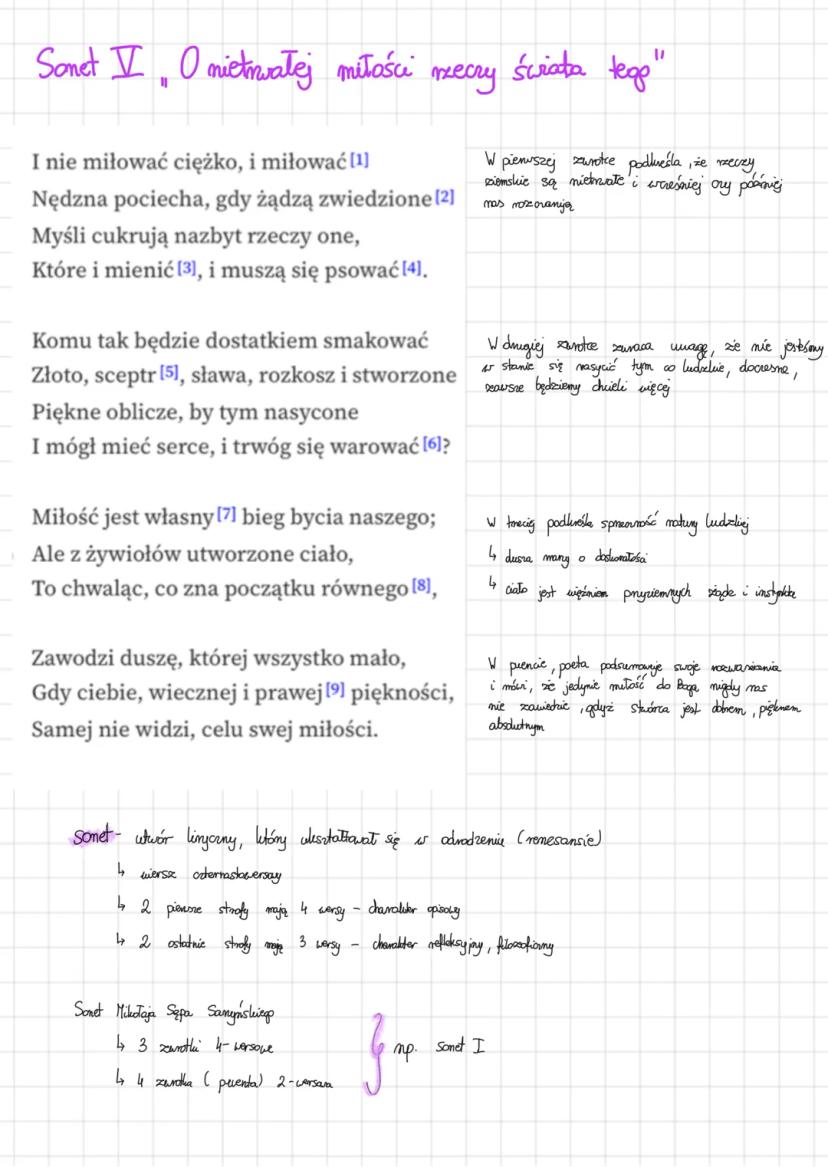 Sonet V „O nietrwałej miłości rzeczy świata tego"
I nie miłować ciężko, i miłować [1]
Nędzna pociecha, gdy żądzą zwiedzione [2]
Myśli cukrują nazbyt rzeczy one,
Które i mienić [3], i muszą się psować [4].
W pierwszej zwrotce podkreśla, że rzeczy
ziemskie są nietrwałe i wcześniej czy później
nas rozczarują
Komu tak będzie dostatkiem smakować
Złoto, sceptr [5], sława, rozkosz i stworzone
Piękne oblicze, by tym nasycone
I mógł mieć serce, i trwóg się warować [6]?
W drugiej zwrotce zwraca uwagę, że nie jesteśmy
w stanie się nasycić tym co ludzkie, doczesne,
zawsze będziemy chcieli więcej
Miłość jest własny [7] bieg bycia naszego;
Ale z żywiołów utworzone ciało,
To chwaląc, co zna początku równego [8],
W trzeciej podkreśla sprzeczność natury ludzkiej
↳ dusza marzy o doskonałości
↳ ciało jest więźniem przyziemnych żądz i instynktów
Zawodzi duszę, której wszystko mało,
Gdy ciebie, wiecznej i prawej [9] piękności,
Samej nie widzi, celu swej miłości.
W puencie, poeta podsumowuje swoje rozważania
i mówi, że jedynie miłość do Boga nigdy nas
nie zawiedzie, gdyż stwórca jest dobrem, pięknem
absolutnym
Sonet - utwór liryczny, który ukształtował się w odrodzeniu (renesansie)
↳ wiersz czternastowersowy
↳ 2 pierwsze strofy mają 4 wersy - charakter opisowy
↳ 2 ostatnie strofy mają 3 wersy - charakter refleksyjny, filozoficzny
Sonet Mikołaja Sępa Sarzyńskiego
↳ 3 zwrotki 4-wersowe
↳ 4 zwrotka (puenta) 2-wersowa
} np. sonet I